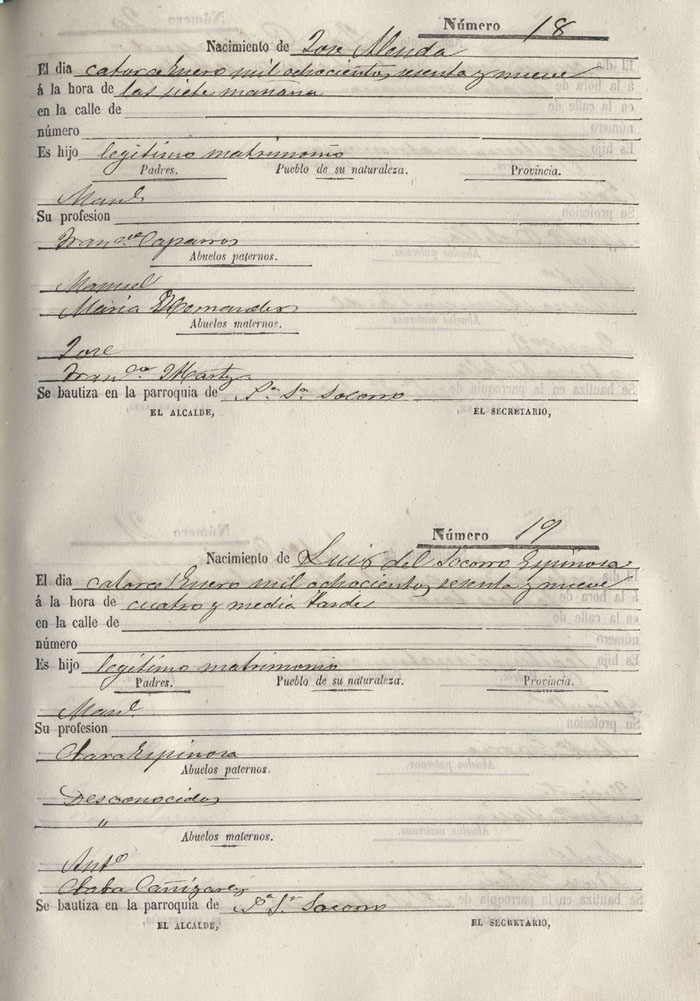 Número 18
Nacimiento de Jose Alenda
El dia catorce Enero mil ochocientos sesenta y nueve
á la hora de las siete mañana
en la calle de
número
Es hijo legitimo matrimonio
Padres. Pueblo de su naturaleza. Provincia.
Manl
Su profesion
Franca Caparros
Abuelos paternos.
Manuel
Maria Hernandez
Abuelos maternos.
Jose
Franca Marty
Se bautiza en la parroquia de Pa Sa Socorro
EL ALCALDE, EL SECRETARIO,
Número 19
Nacimiento de Luis del Socorro Espinosa
El dia catorce Enero mil ochocientos sesenta y nueve
á la hora de cuatro y media tarde
en la calle de
número
Es hijo legitimo matrimonio
Padres. Pueblo de su naturaleza. Provincia.
Manl
Su profesion
Clara Espinosa
Abuelos paternos.
Desconocidos
"
Abuelos maternos.
Anto
Cañizares
Se bautiza en la parroquia de Pa Sa Socorro
EL ALCALDE, EL SECRETARIO,